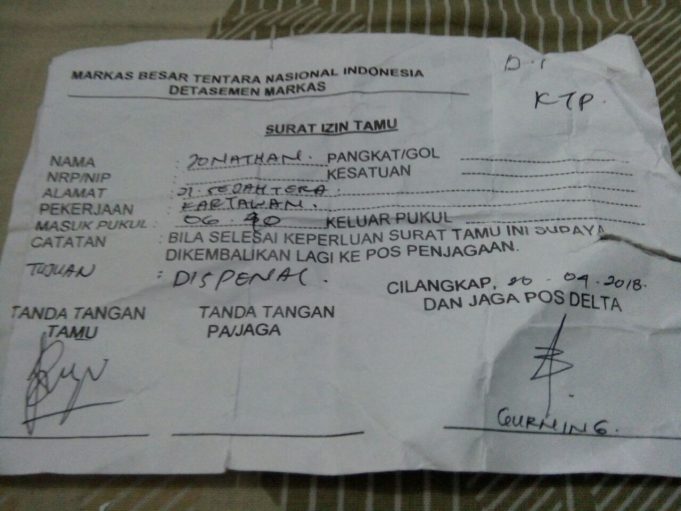 MARKAS BESAR TENTARA NASIONAL INDONESIA
DETASEMEN MARKAS
D.1
KTP.
SURAT IZIN TAMU
NAMA : JONATHAN. PANGKAT/GOL
NRP/NIP : KESATUAN
ALAMAT : Jl. SEJAHTERA.
PEKERJAAN : KARYAWAN.
MASUK PUKUL : 06. KELUAR PUKUL
CATATAN : BILA SELESAI KEPERLUAN SURAT TAMU INI SUPAYA
DIKEMBALIKAN LAGI KE POS PENJAGAAN.
TUJUAN : DISPENAL.
CILANGKAP, 20 - 04 - 2018.
DAN JAGA POS DELTA
TANDA TANGAN
TAMU
TANDA TANGAN
PA/JAGA
GURNING.